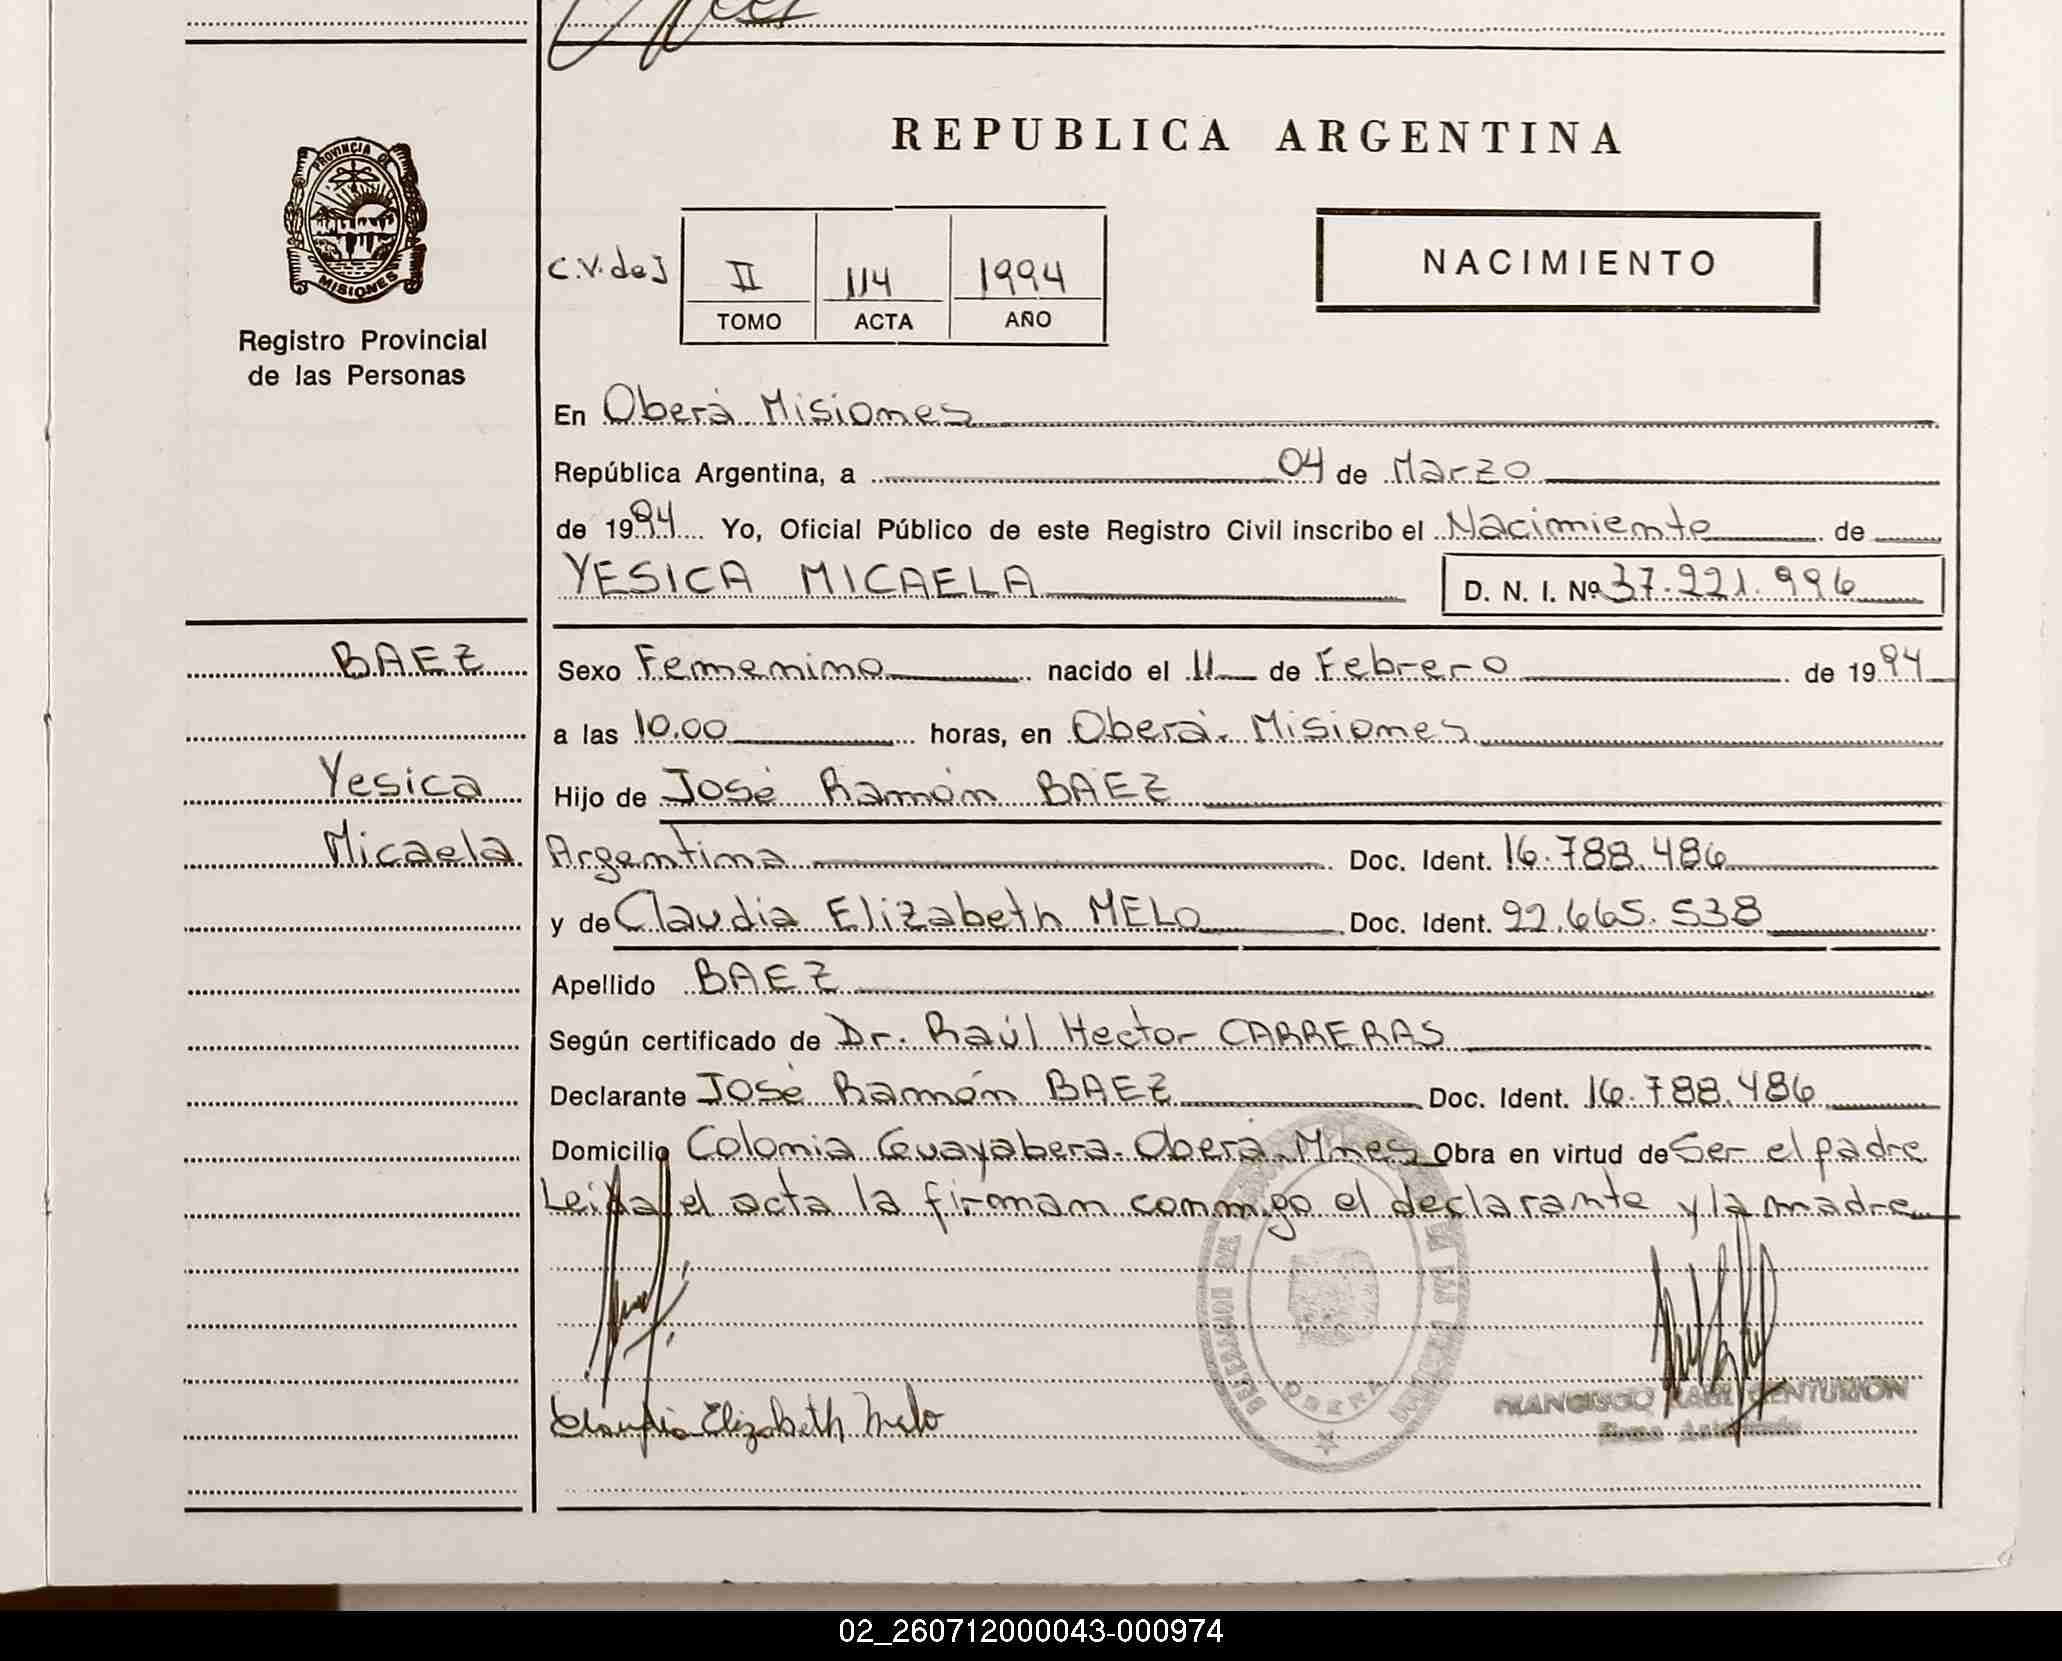 PROVINCIA DE
MISIONES
Registro Provincial
de las Personas
REPUBLICA ARGENTINA
C.V. de J
II
114
1994
TOMO
ACTA
AÑO
NACIMIENTO
En Oberá Misiones
República Argentina, a 04 de Marzo
de 1994 Yo, Oficial Público de este Registro Civil inscribo el Nacimiento de
YESICA MICAELA
D. N. I. Nº 37.221.996
BAEZ
Yesica
Micaela
Sexo Femenino nacido el 11 de Febrero de 1994
a las 10.00 horas, en Oberá. Misiones
Hijo de José Ramón BAEZ
Argentina Doc. Ident. 16.788.486
y de Claudia Elizabeth MELO Doc. Ident. 92.665.538
Apellido BAEZ
Según certificado de Dr. Raúl Hector CARRERAS
Declarante José Ramón BAEZ Doc. Ident. 16.788.486
Domicilio Colonia Guayabera. Oberá Mnes Obra en virtud de Ser el padre
Leida el acta la firman conmigo el declarante y la madre
OBERA
FRANCISCO RAUL CENTURION
Claudia Elizabeth Melo
02_260712000043-000974